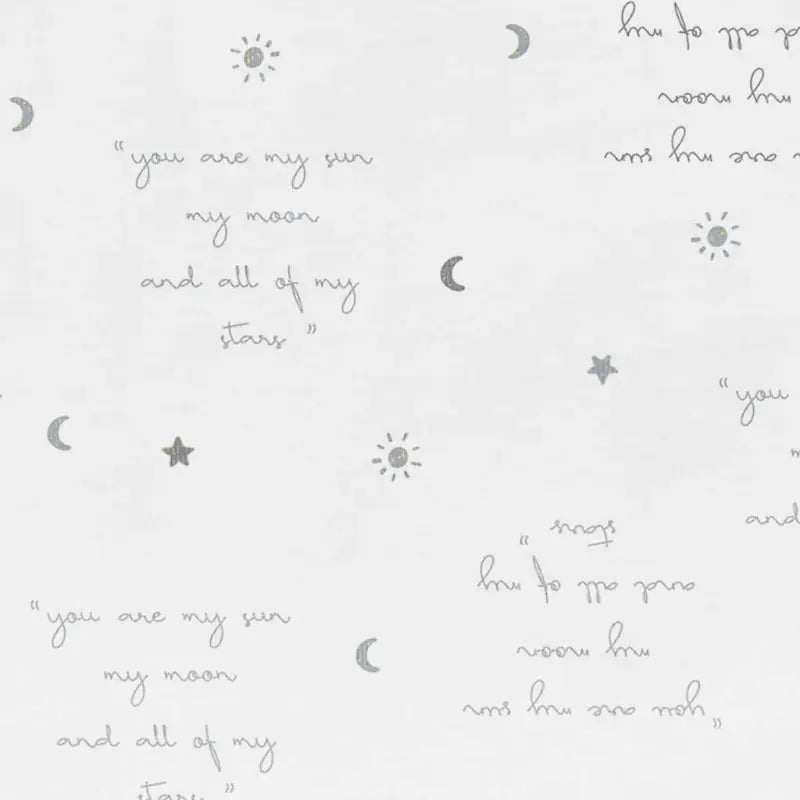 all of my
my moon
are my sun
“you are my sun
my moon
and all of my
stars ”
“you
and
“you are my sun
my moon
and all of my
stars ”
stars ”
and all of my
my moon
“you are my sun